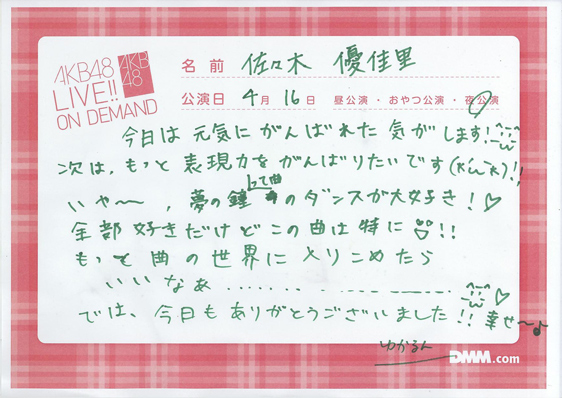 AKB48
LIVE!!
ON DEMAND
AKB
48
名前 佐々木 優佳里
公演日 4月16日 昼公演・おやつ公演・夜公演
今日は元気にがんばれた気がします!
次は、もっと表現力をがんばりたいです!!
いや〜、夢の鐘って曲のダンスが大好き!♡
全部好きだけどこの曲は特に!!
もっと曲の世界に入りこめたら
いいなぁ
では、今日もありがとうございました!!幸せ〜♪
ゆかるん
DMM.com